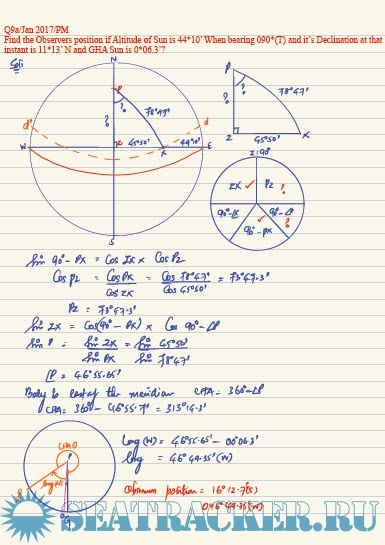 Q9a/Jan 2017/PM
Find the Observers position if Altitude of Sun is 44*10' When bearing 090*(T) and it's Declination at that
instant is 11*13' N and GHA Sun is 0*06.3'?
Sol:
N
P
?
78°47'
?
d'
d
W
Z
45°50'
X
44°10'
E
S
P
?
78°47'
?
Z
45°50'
X
Z=90°
ZX ✓
PZ ?
90-∠X
90-∠P ?
✓
90-PX
Sin 90-PX = Cos ZX × Cos PZ
Cos PZ = Cos PX / Cos ZX = Cos 78°47' / Cos 45°50' = 73°47.3'
PZ = 73°47.3'
Sin ZX = Cos(90-PX) × Cos 90-∠P
Sin P = Sin ZX / Sin PX = Sin 45°50' / Sin 78°47'
∠P = 46°55.65'
Body to east of the meridian LHA = 360-∠P
LHA = 360 - 46°55.7' = 313°04.3'
Long (W) = 46°55.65' - 00°06.3'
Long = 46°49.35' (W)
Observers position = 16°12.7'(S)
046°49.35'(W)
SEATRACKER.RU